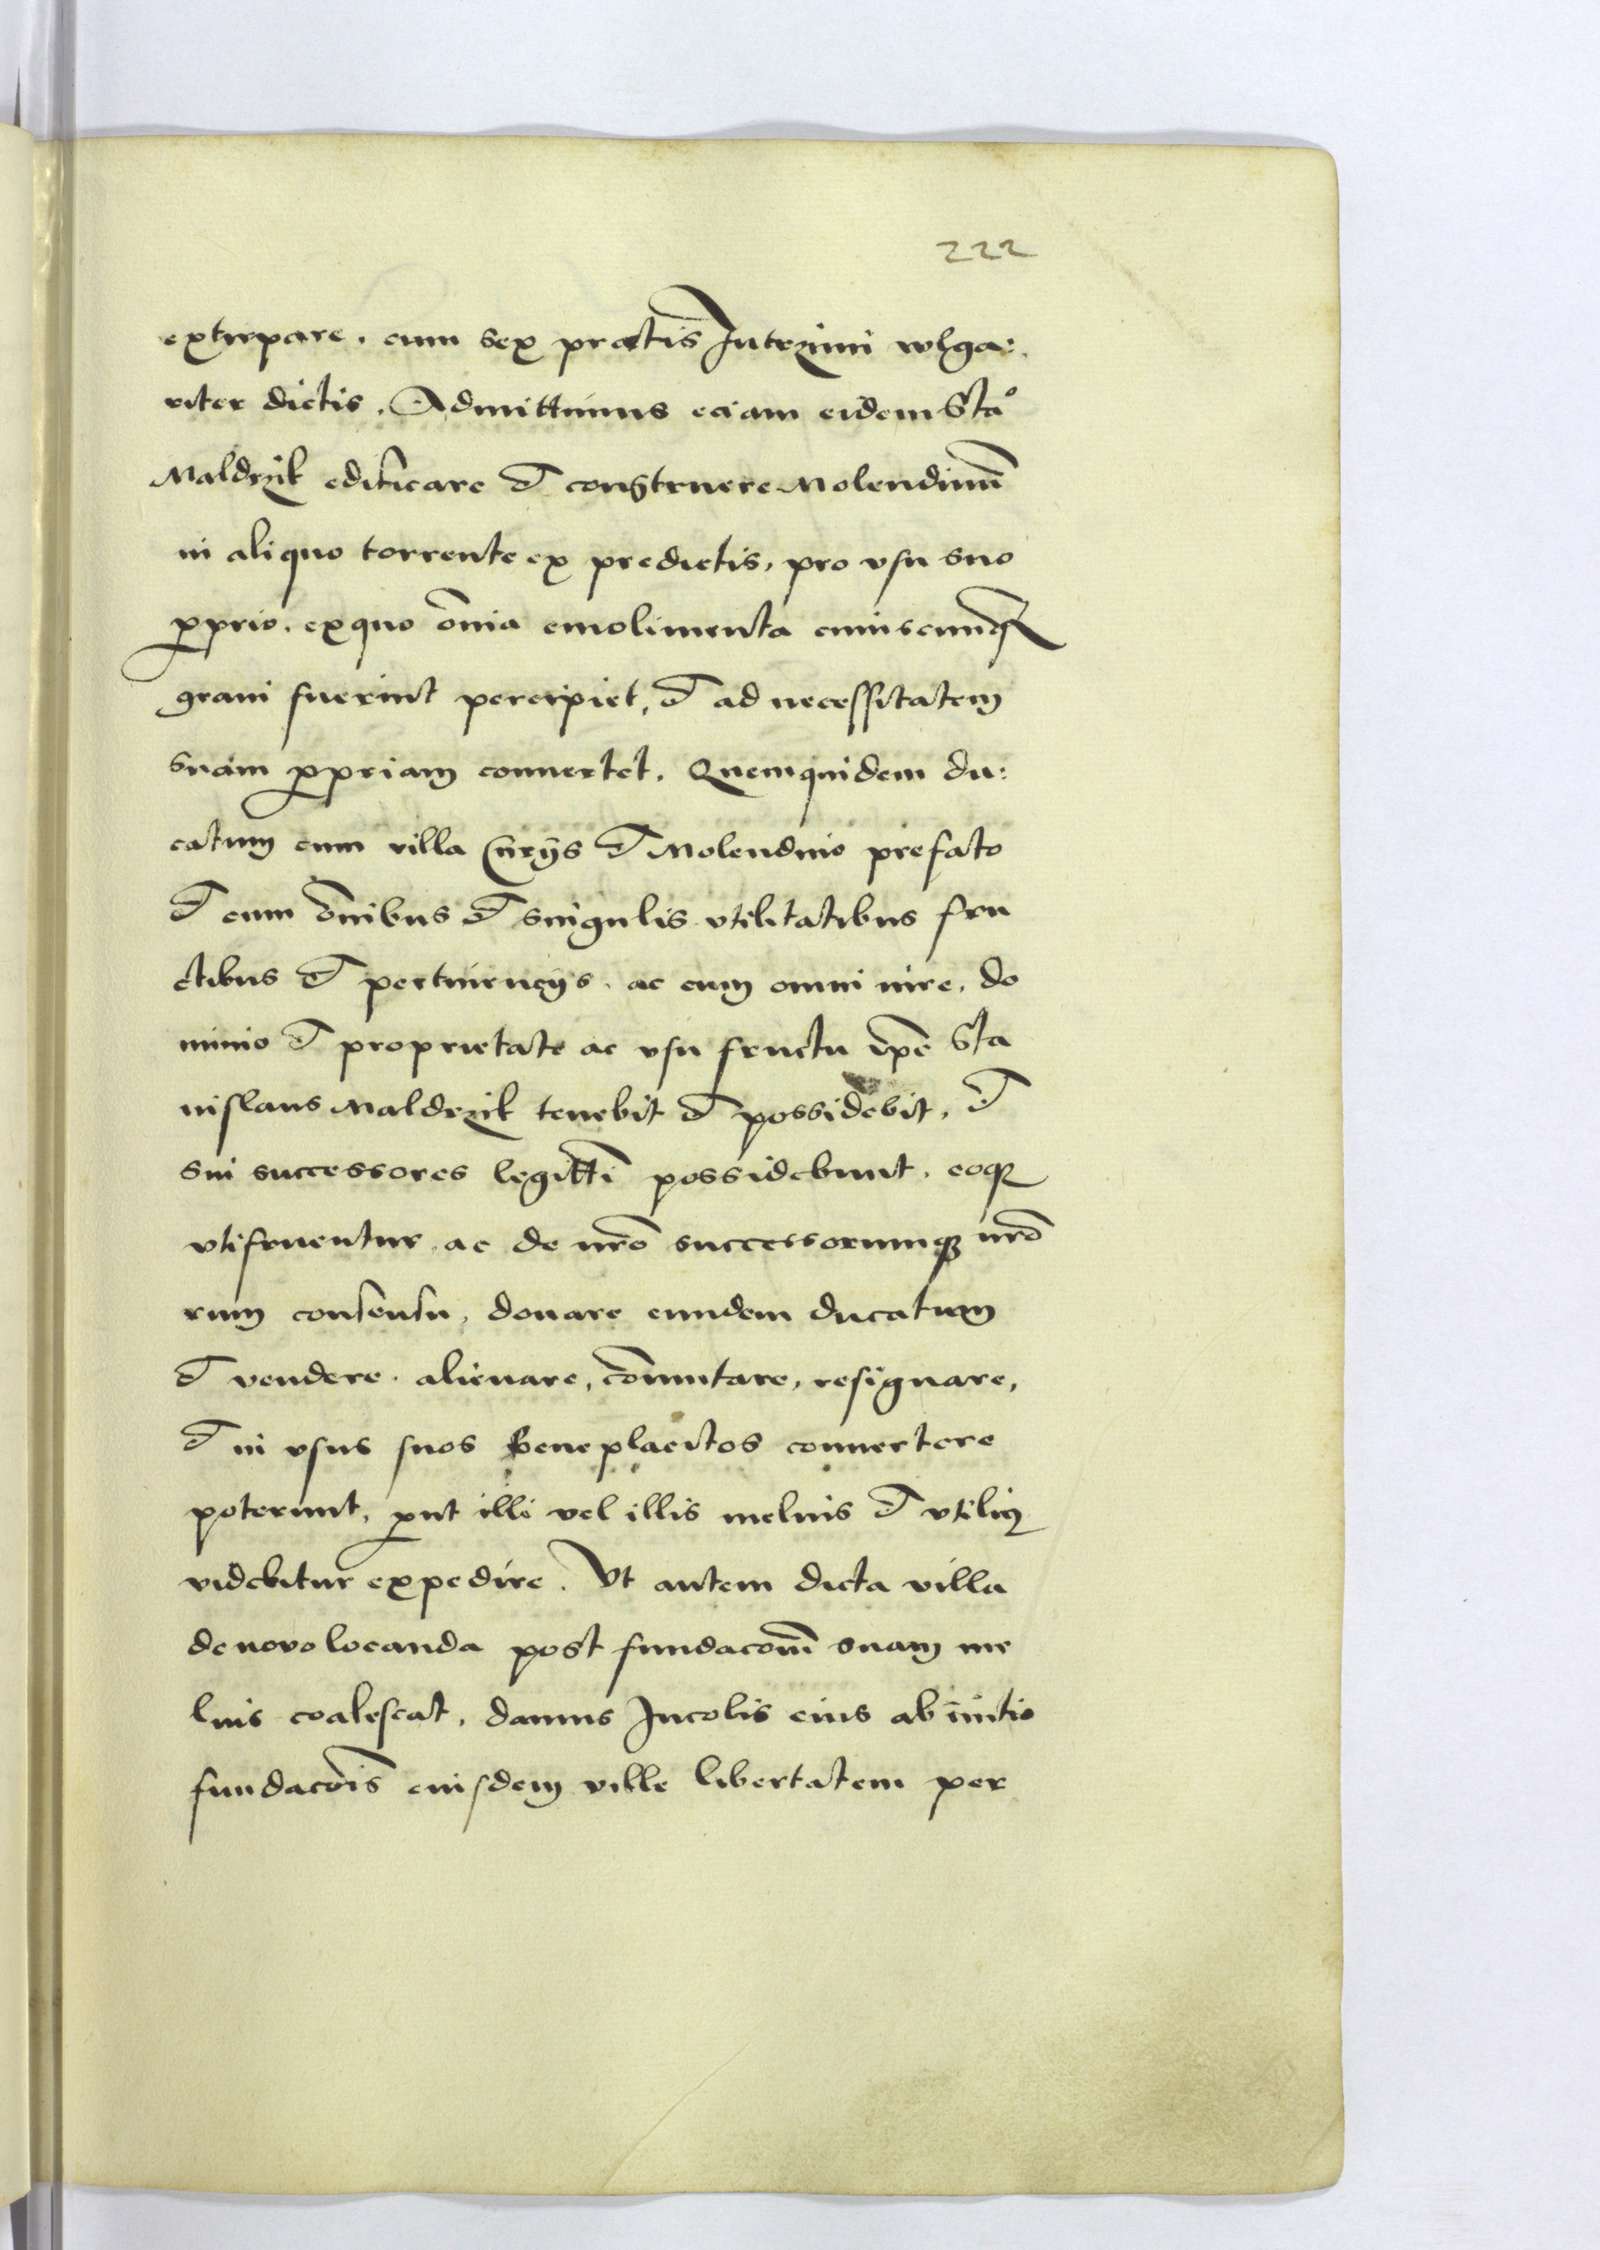 222
extirpare. cum sex pratis Interzimi wlga:
riter dictis. Admittimus eciam eidem Sta°
Maldrzik edificare et construere Molendinū
in aliquo torrente ex predictis, pro vsu suo
ꝓprio. ex quo ōnia emolimenta cuiuscunqꝫ
grani fuerint percipiet, et ad necessitatem
suam ꝓpriam conuertet. Quemquidem du:
catum cum villa Curijs et Molendino prefato
et cum ōnibus et singulis vtilitatibus fru
ctibus et pertinencijs. ac cum omni iure, do
minio et proprietate ac vsu fructu ip̄e Sta
nislaus Maldrzik tenebit et possidebit, et
sui successores legitti̅ possidebunt. eoqꝫ
vtifruentur. ac de nr̄o successorumqꝫ nr̄o
rum consensu, donare eundem ducatum
et vendere. alienare, cōmutare, resignare,
et in vsus suos beneplacitos conuertere
poterunt, ꝓut illi vel illis melius et vtiliꝯ
videbitur expedire. Vt autem dicta villa
de novo locanda post fundacōm̄ suam me
lius coalescat, damus Incolis eius ab īnitio
fundacōis eiusdem ville libertatem per